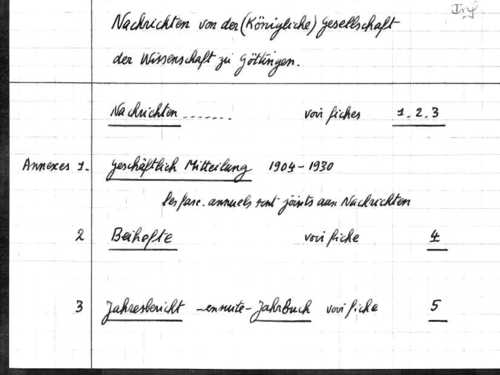 Nachrichten von der (Königliche) Gesellschaft
der Wissenschaft zu Göttingen.
Nachrichten ....... voir fiches 1.2.3
Annexes 1. Geschäftlich Mitteilung 1904-1930
les fasc. annuels sont joints aux Nachrichten
2 Beihefte voir fiche 4
3 Jahresbericht -ensuite- Jahrbuch voir fiche 5